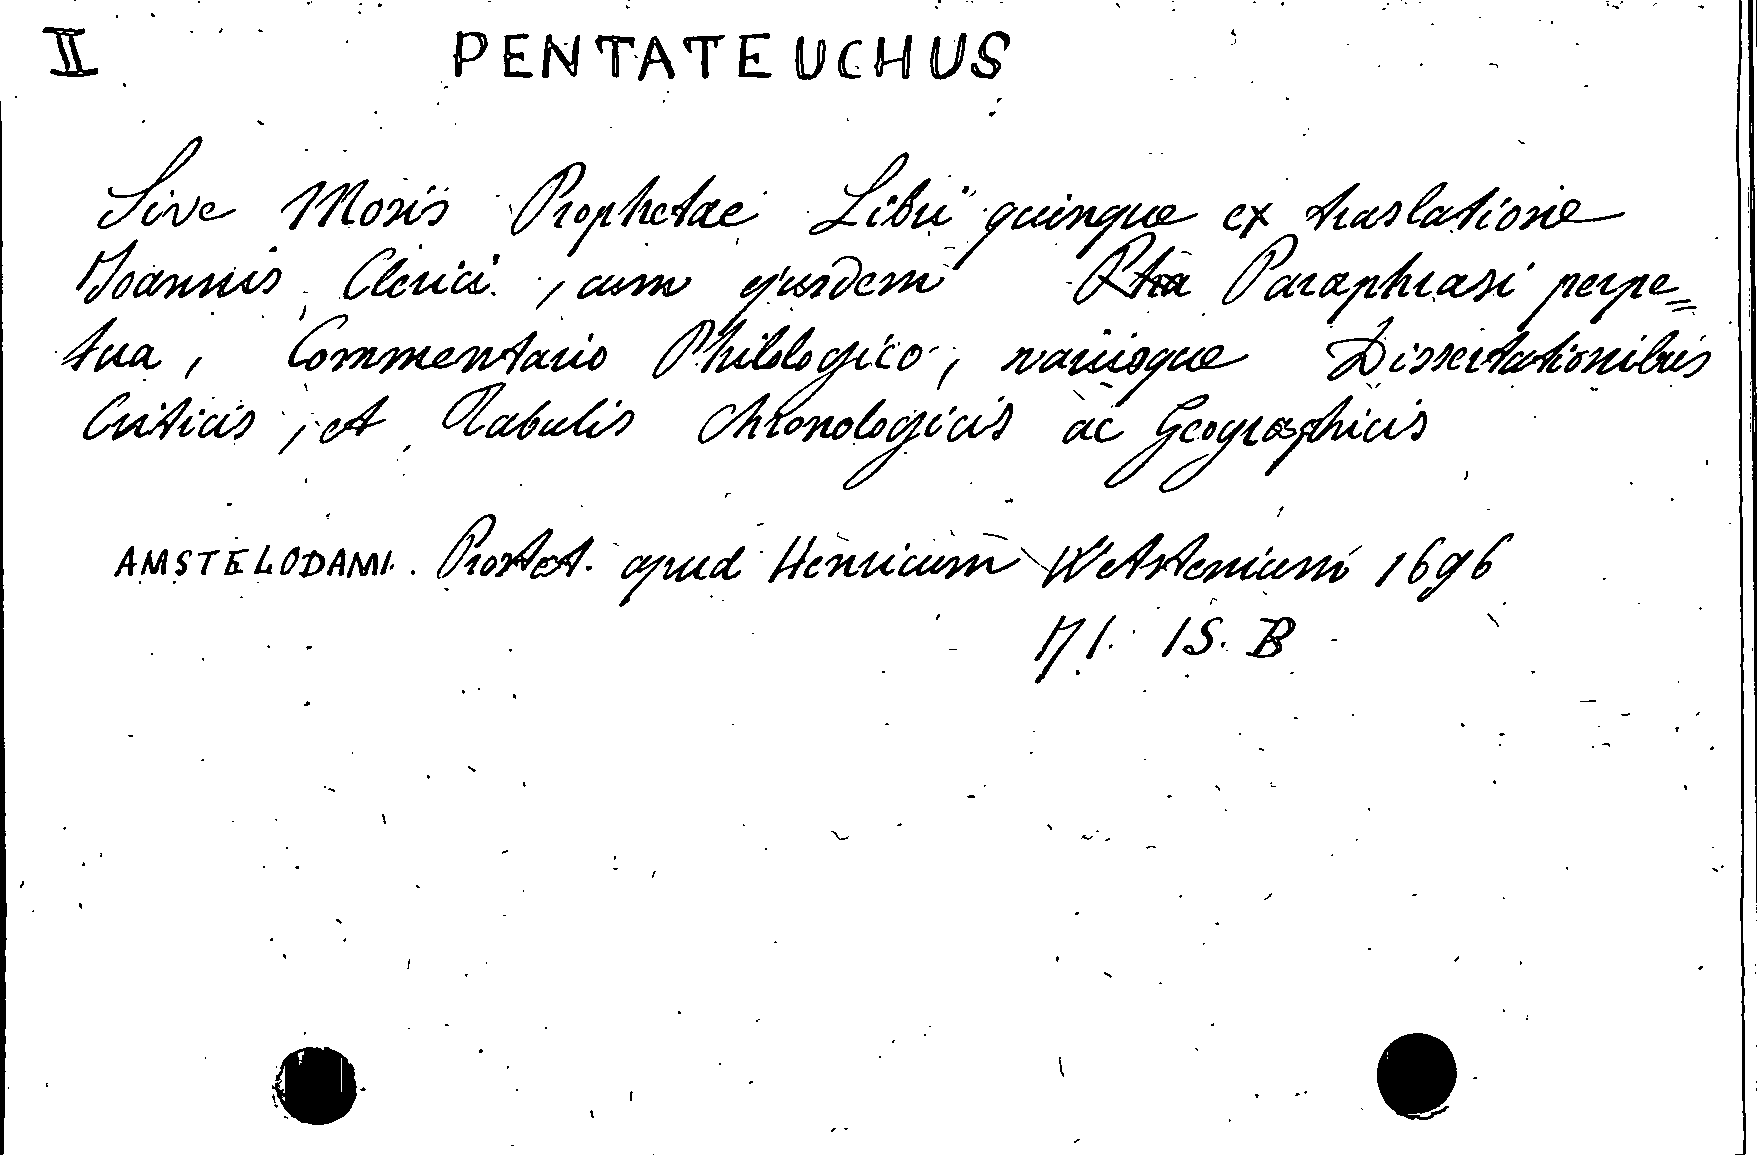 II PENTATEUCHUS
Sive Mosis Prophetae Libri quinque ex traslatione
Joannis Clerici, cum ejusdem Paraphrasi perpe=
tua, Commentario Philologico, variisque Dissertationibus
Criticis, et Tabulis Chronologicis ac Geographicis
AMSTELODAMI. Prostat. apud Henricum Wetstenium 1696
15. B